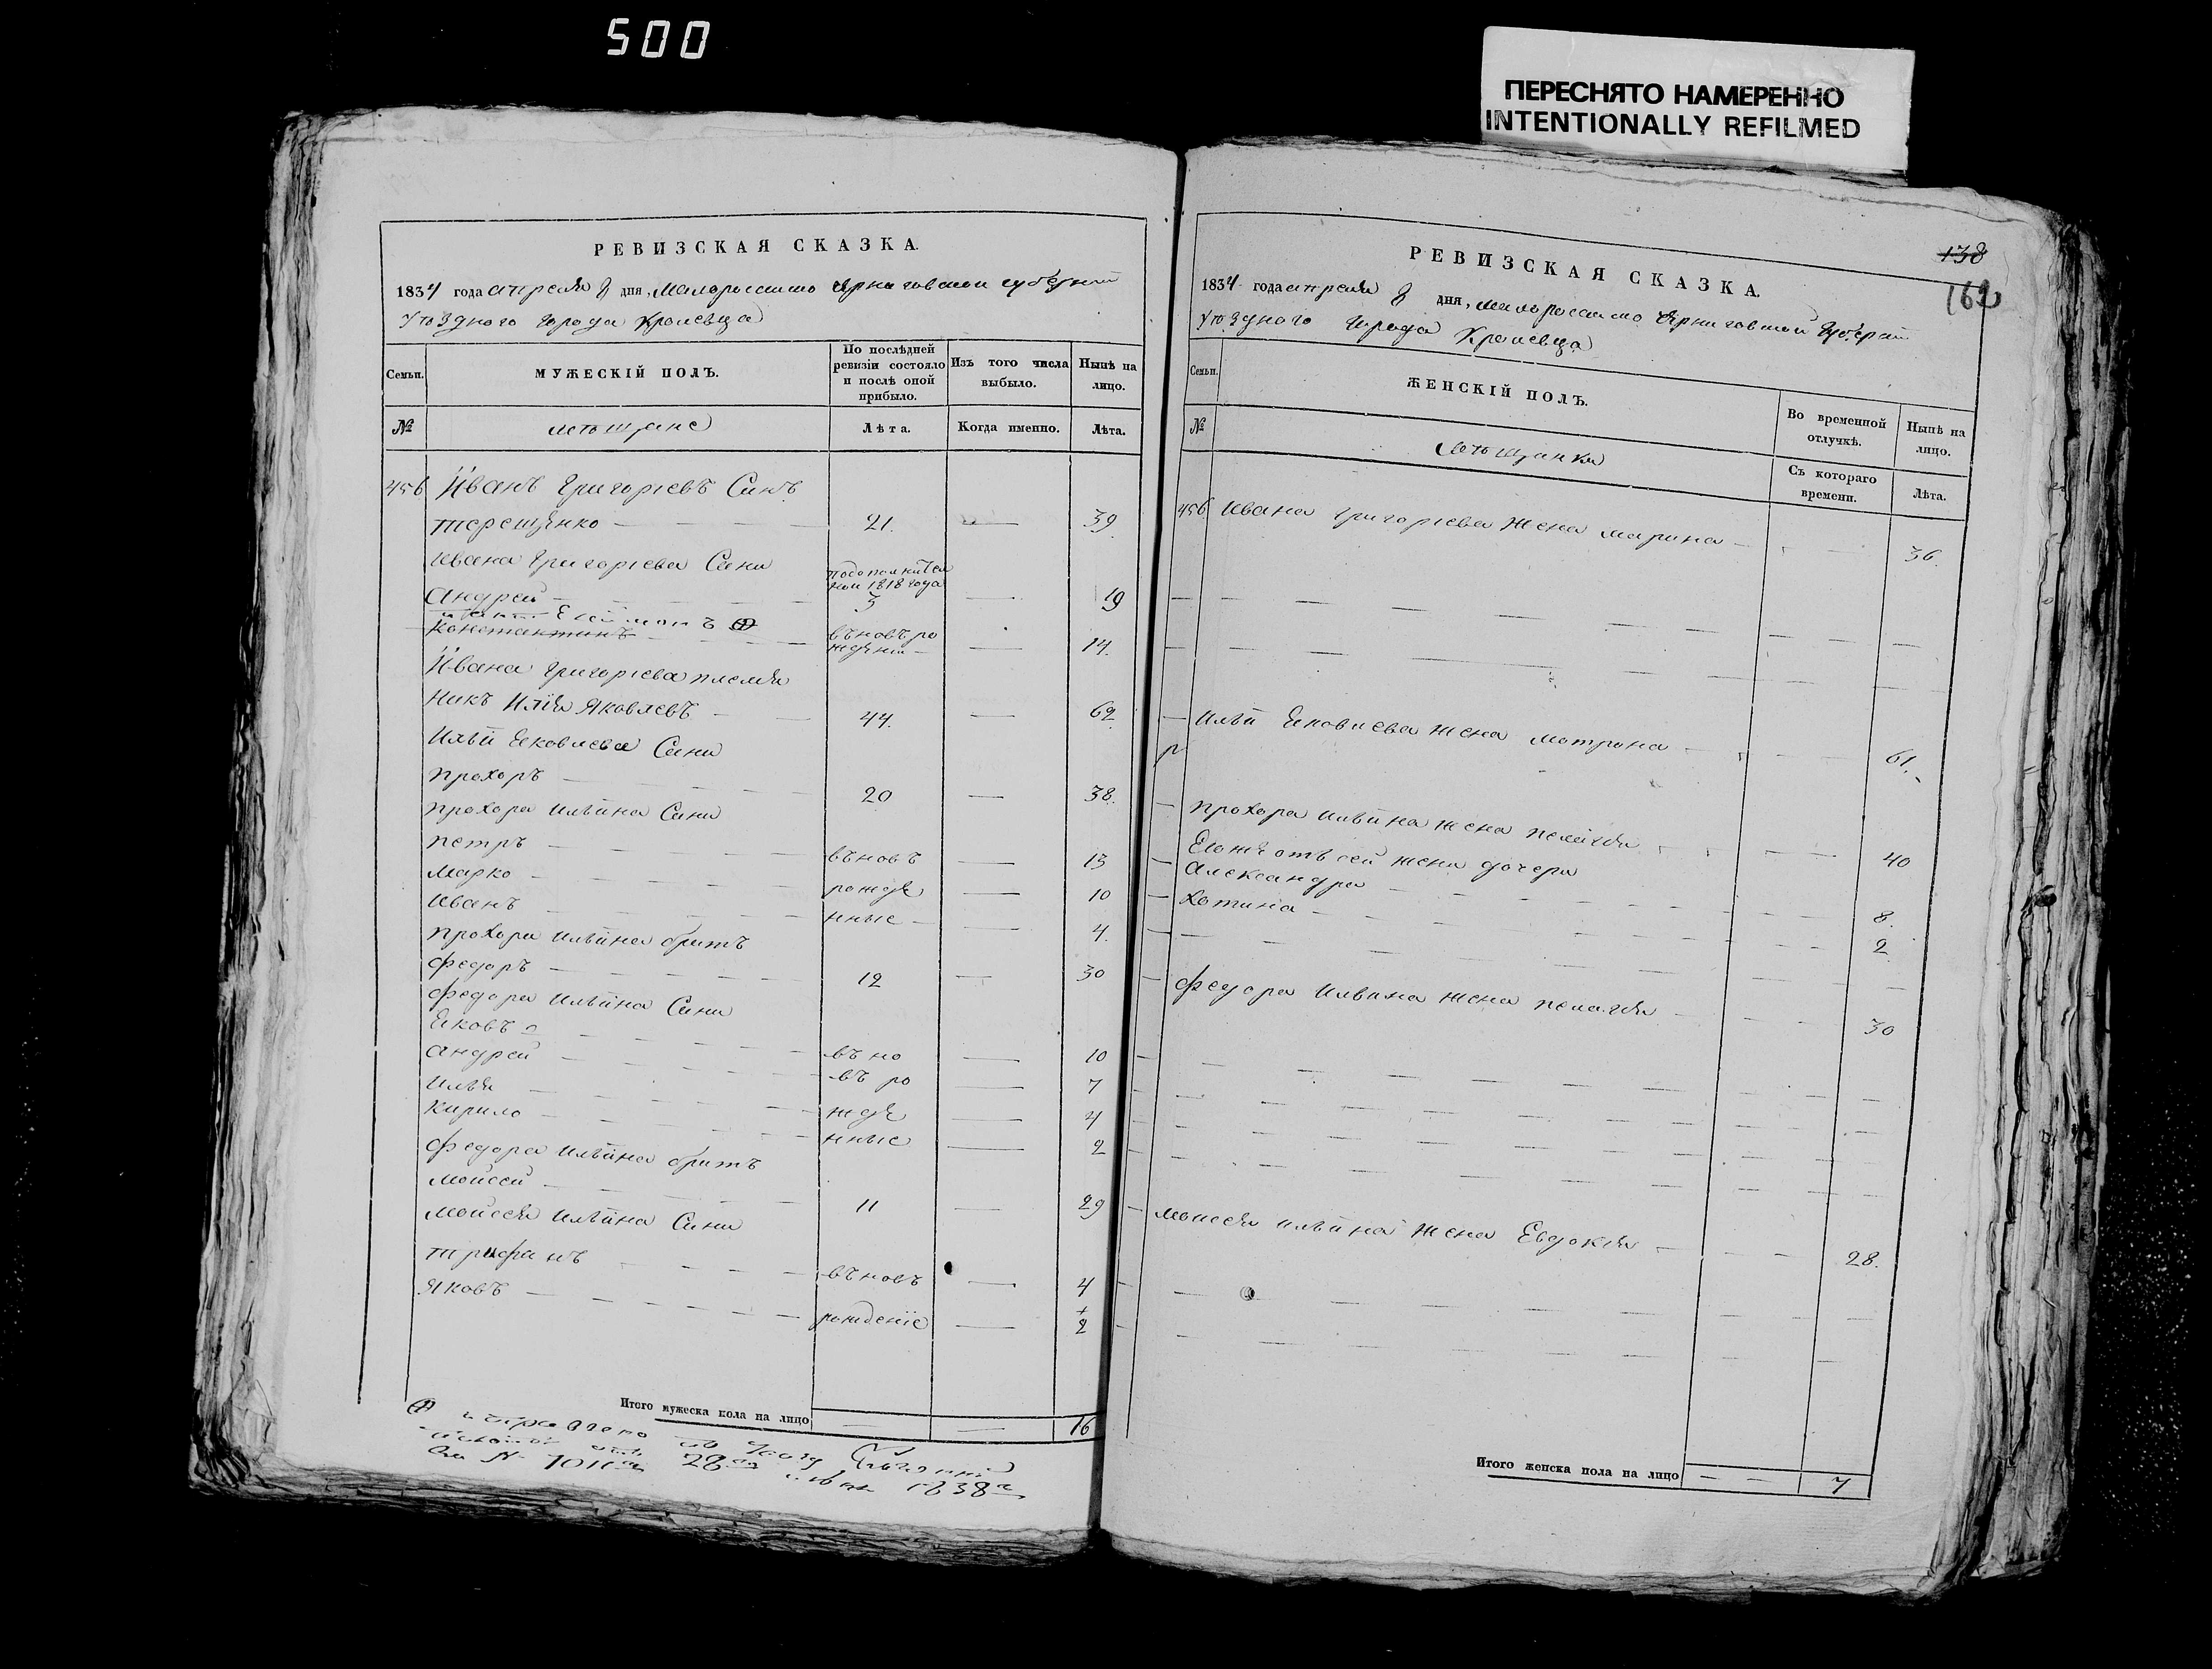 500
ПЕРЕСНЯТО НАМЕРЕННО
INTENTIONALLY REFILMED
РЕВИЗСКАЯ СКАЗКА.
1834 года апреля 8 дня, Малоросийско Черниговской губерний
уѣзднаго города Кролевца
Семьи.
МУЖЕСКІЙ ПОЛЪ.
По послѣдней ревизіи состояло и послѣ оной прибыло.
Изъ того числа выбыло.
Нынѣ на лицо.
№
мещане
Лѣта.
Когда именно.
Лѣта.
456 Иванъ Григоріевъ Синъ
терещенко 21. 39.
Ивана Григоріева Сини
подополнител
ной 1818 года
Андрей 3 19
Константинъ въновъ ро
ждении 14.
Ивана Григоріева племя
никъ Илія Яковлевъ 44. 62
Ильи Яковлева Сини
прохоръ 20 38.
прохора Ильина Сини
петръ въновъ 13
Марко рожде 10
Иванъ нные 4.
прохора Ильина братъ
федоръ 12 30
федора Ильина Сини
Яковъ въ но 10
андрей въ ро 7
Илья жде 4
Кирило нные 2
федора Ильина братъ
Мойсей 11 29
Мойсея Ильина Сини
трифанъ въновъ 4
Яковъ рожденіе 2
Итого мужеска пола на лицо 16
28 1838
138
162
РЕВИЗСКАЯ СКАЗКА.
1834 года апреля 8 дня, малоросийско Черниговской Губерний
уѣзднаго города Кролевца
Семьи.
ЖЕНСКІЙ ПОЛЪ.
Во временной отлучкѣ.
Нынѣ на лицо.
№
мещанки
Съ котораго времени.
Лѣта.
456 Ивана Григоріева жена марина 36.
Ильи Яковлева жена мотрона 61.
прохора Ильина жена пелагія 40
Егоже отъ сей жени дочери
Александра 8.
Хотина 2
федора Ильина жена пелагія 30
Мойсея Ильина жена Евдокія 28.
Итого женска пола на лицо 7